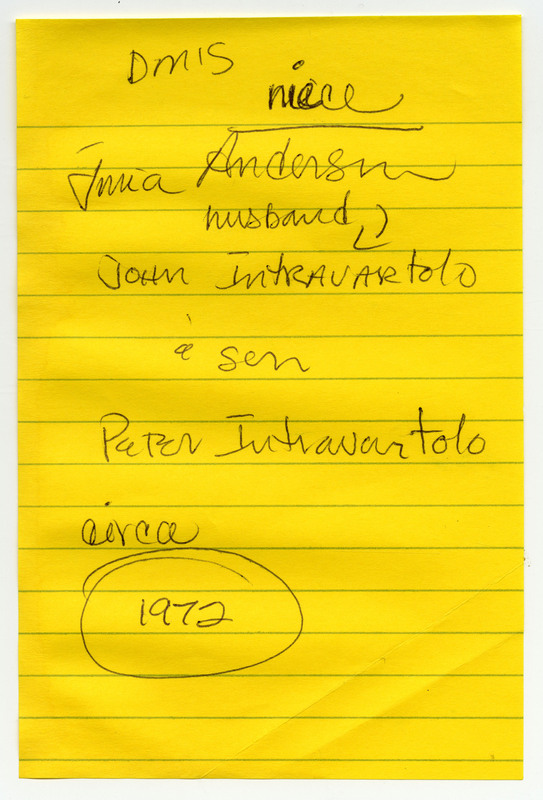 DM'S
niece
Anderson
husband
JOHN INTRAVARTOLO
& son
PETER Intravartolo
circa
1972